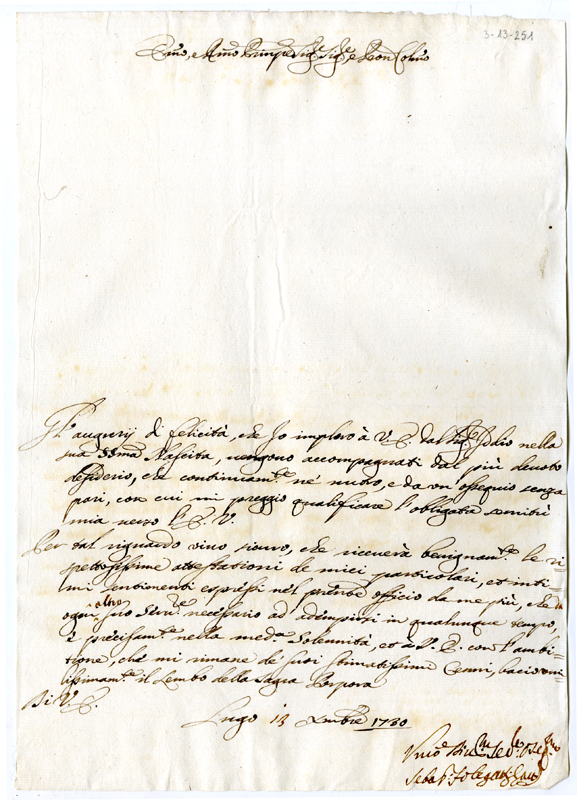 3-13-251
Emo, e Rmo Prinpe Sigre Sigre e Pron Colmo
Gl'augurij di felicità, che Io imploro à V. E. dal Sigre Iddio nella
sua SSma Nascita, vengono accompagnati dal più devoto
desiderio, che continuamte ne' nutro, e da un ossequio senza
pari, con cui mi preggio qualificare l'obligata servitù
mia verso l'E. V.
Per tal riguardo vivo sicuro, che riceverà benignamte le ri=
spettosissime attestationi de miei particolari, et inti=
mi sentimenti espressi nel presente officio da me più, che da
ogni altro suo Servre necessario ad adempirsi in qualunque tempo,
e precisamte nella meda Solennità, et à V. E. con l'ambi=
tione, che mi rimane de' suoi stimatissimi Cenni, bacio umi=
lissimamte il Lembo della Sagra Porpora
Di V. E.
Lugo 13 Xmbre 1730